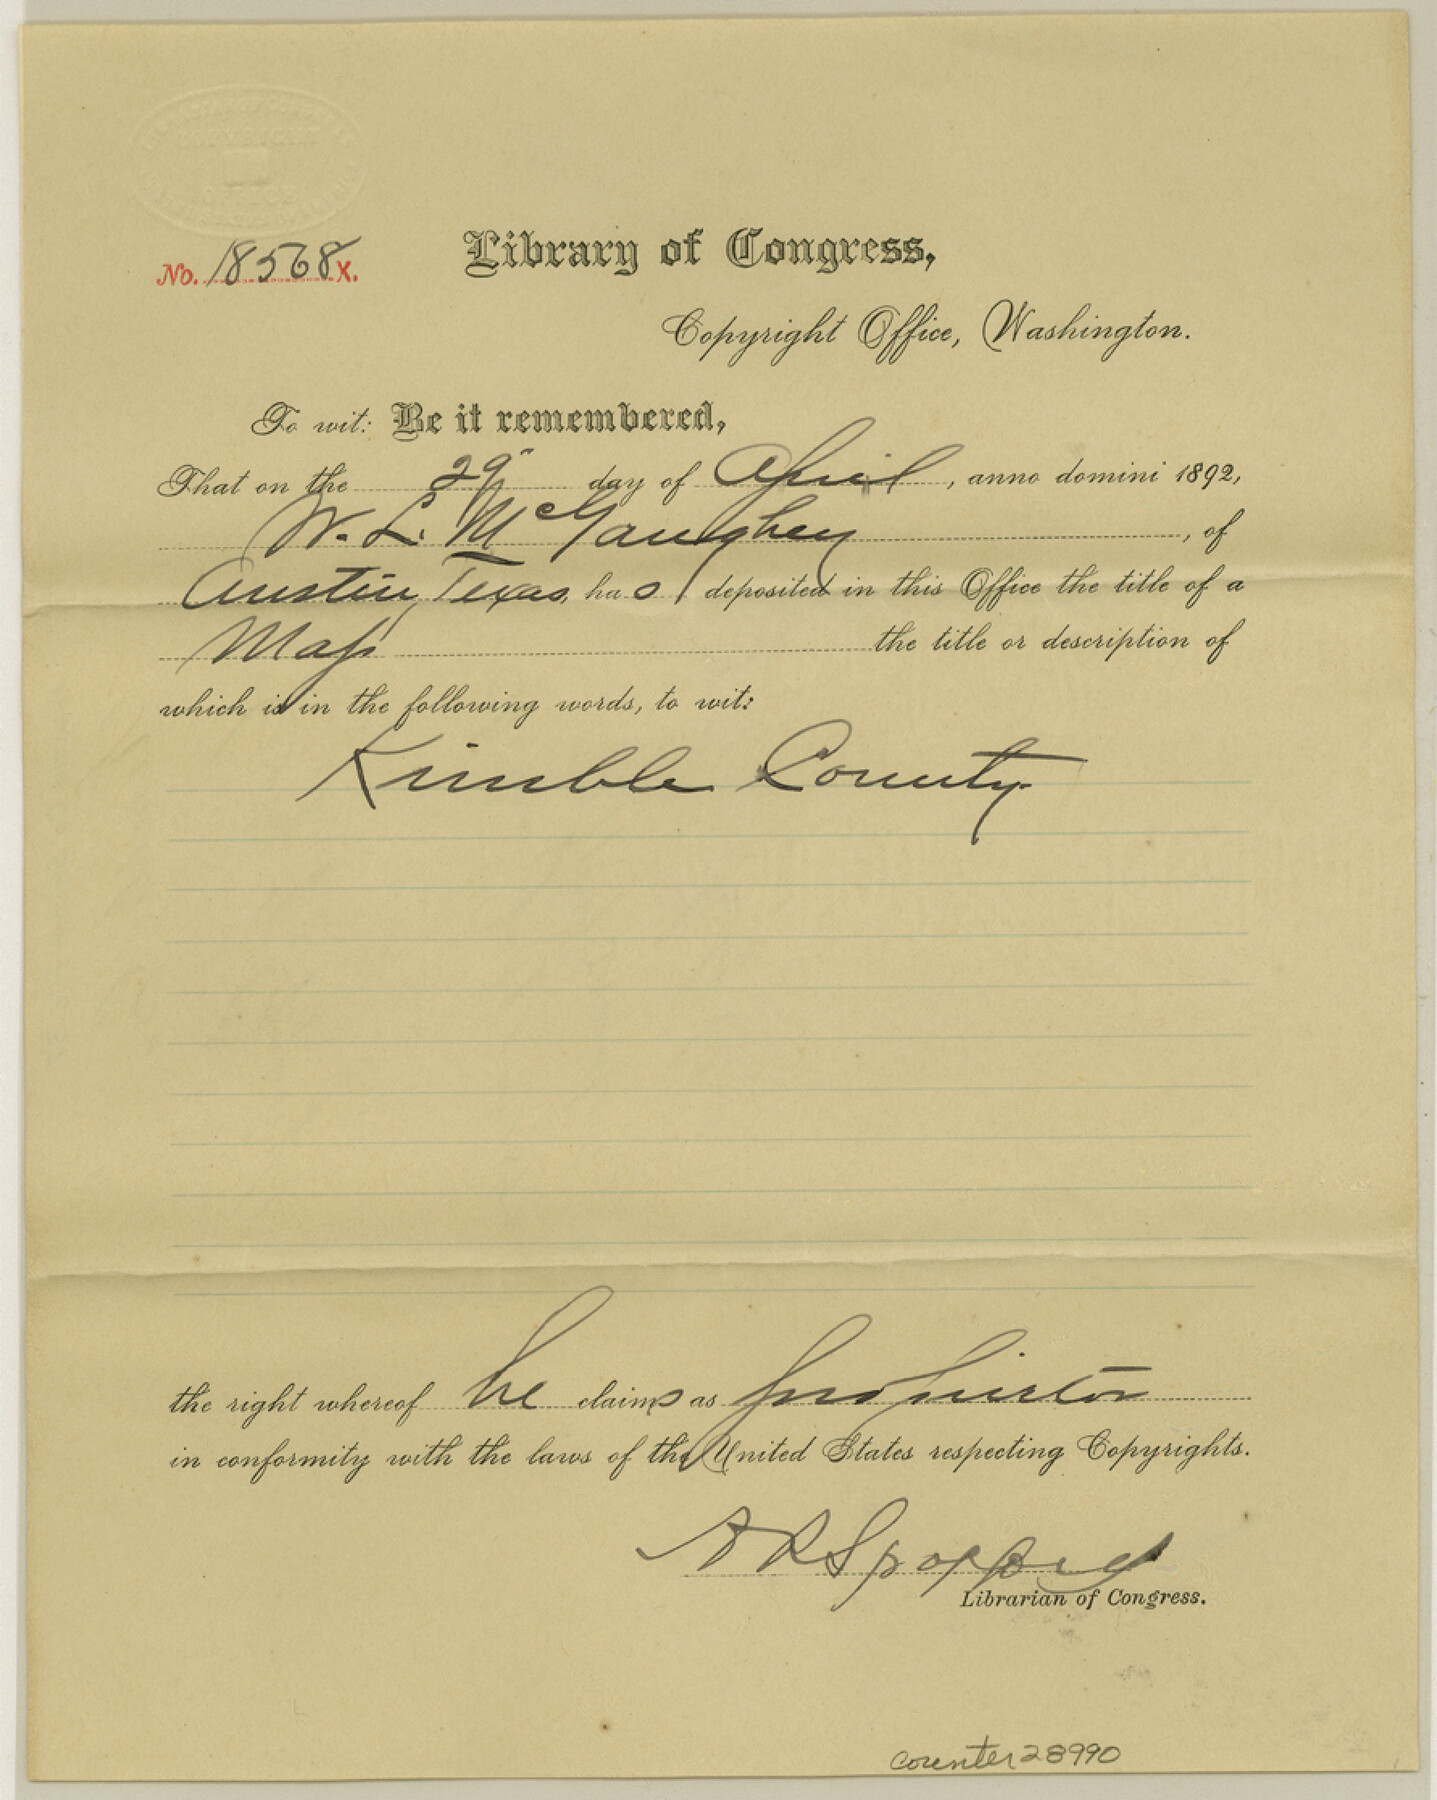 COPYRIGHT
OFFICE
No. 18568 X.
Library of Congress,
Copyright Office, Washington.
To wit: Be it remembered,
That on the 29" day of April, anno domini 1892,
W. L. McGaughey, of
Austin, Texas, has deposited in this Office the title of a
Map the title or description of
which is in the following words, to wit:
Kimble County.
the right whereof he claims as proprietor
in conformity with the laws of the United States respecting Copyrights.
A R Spofford
Librarian of Congress.
counter 28990